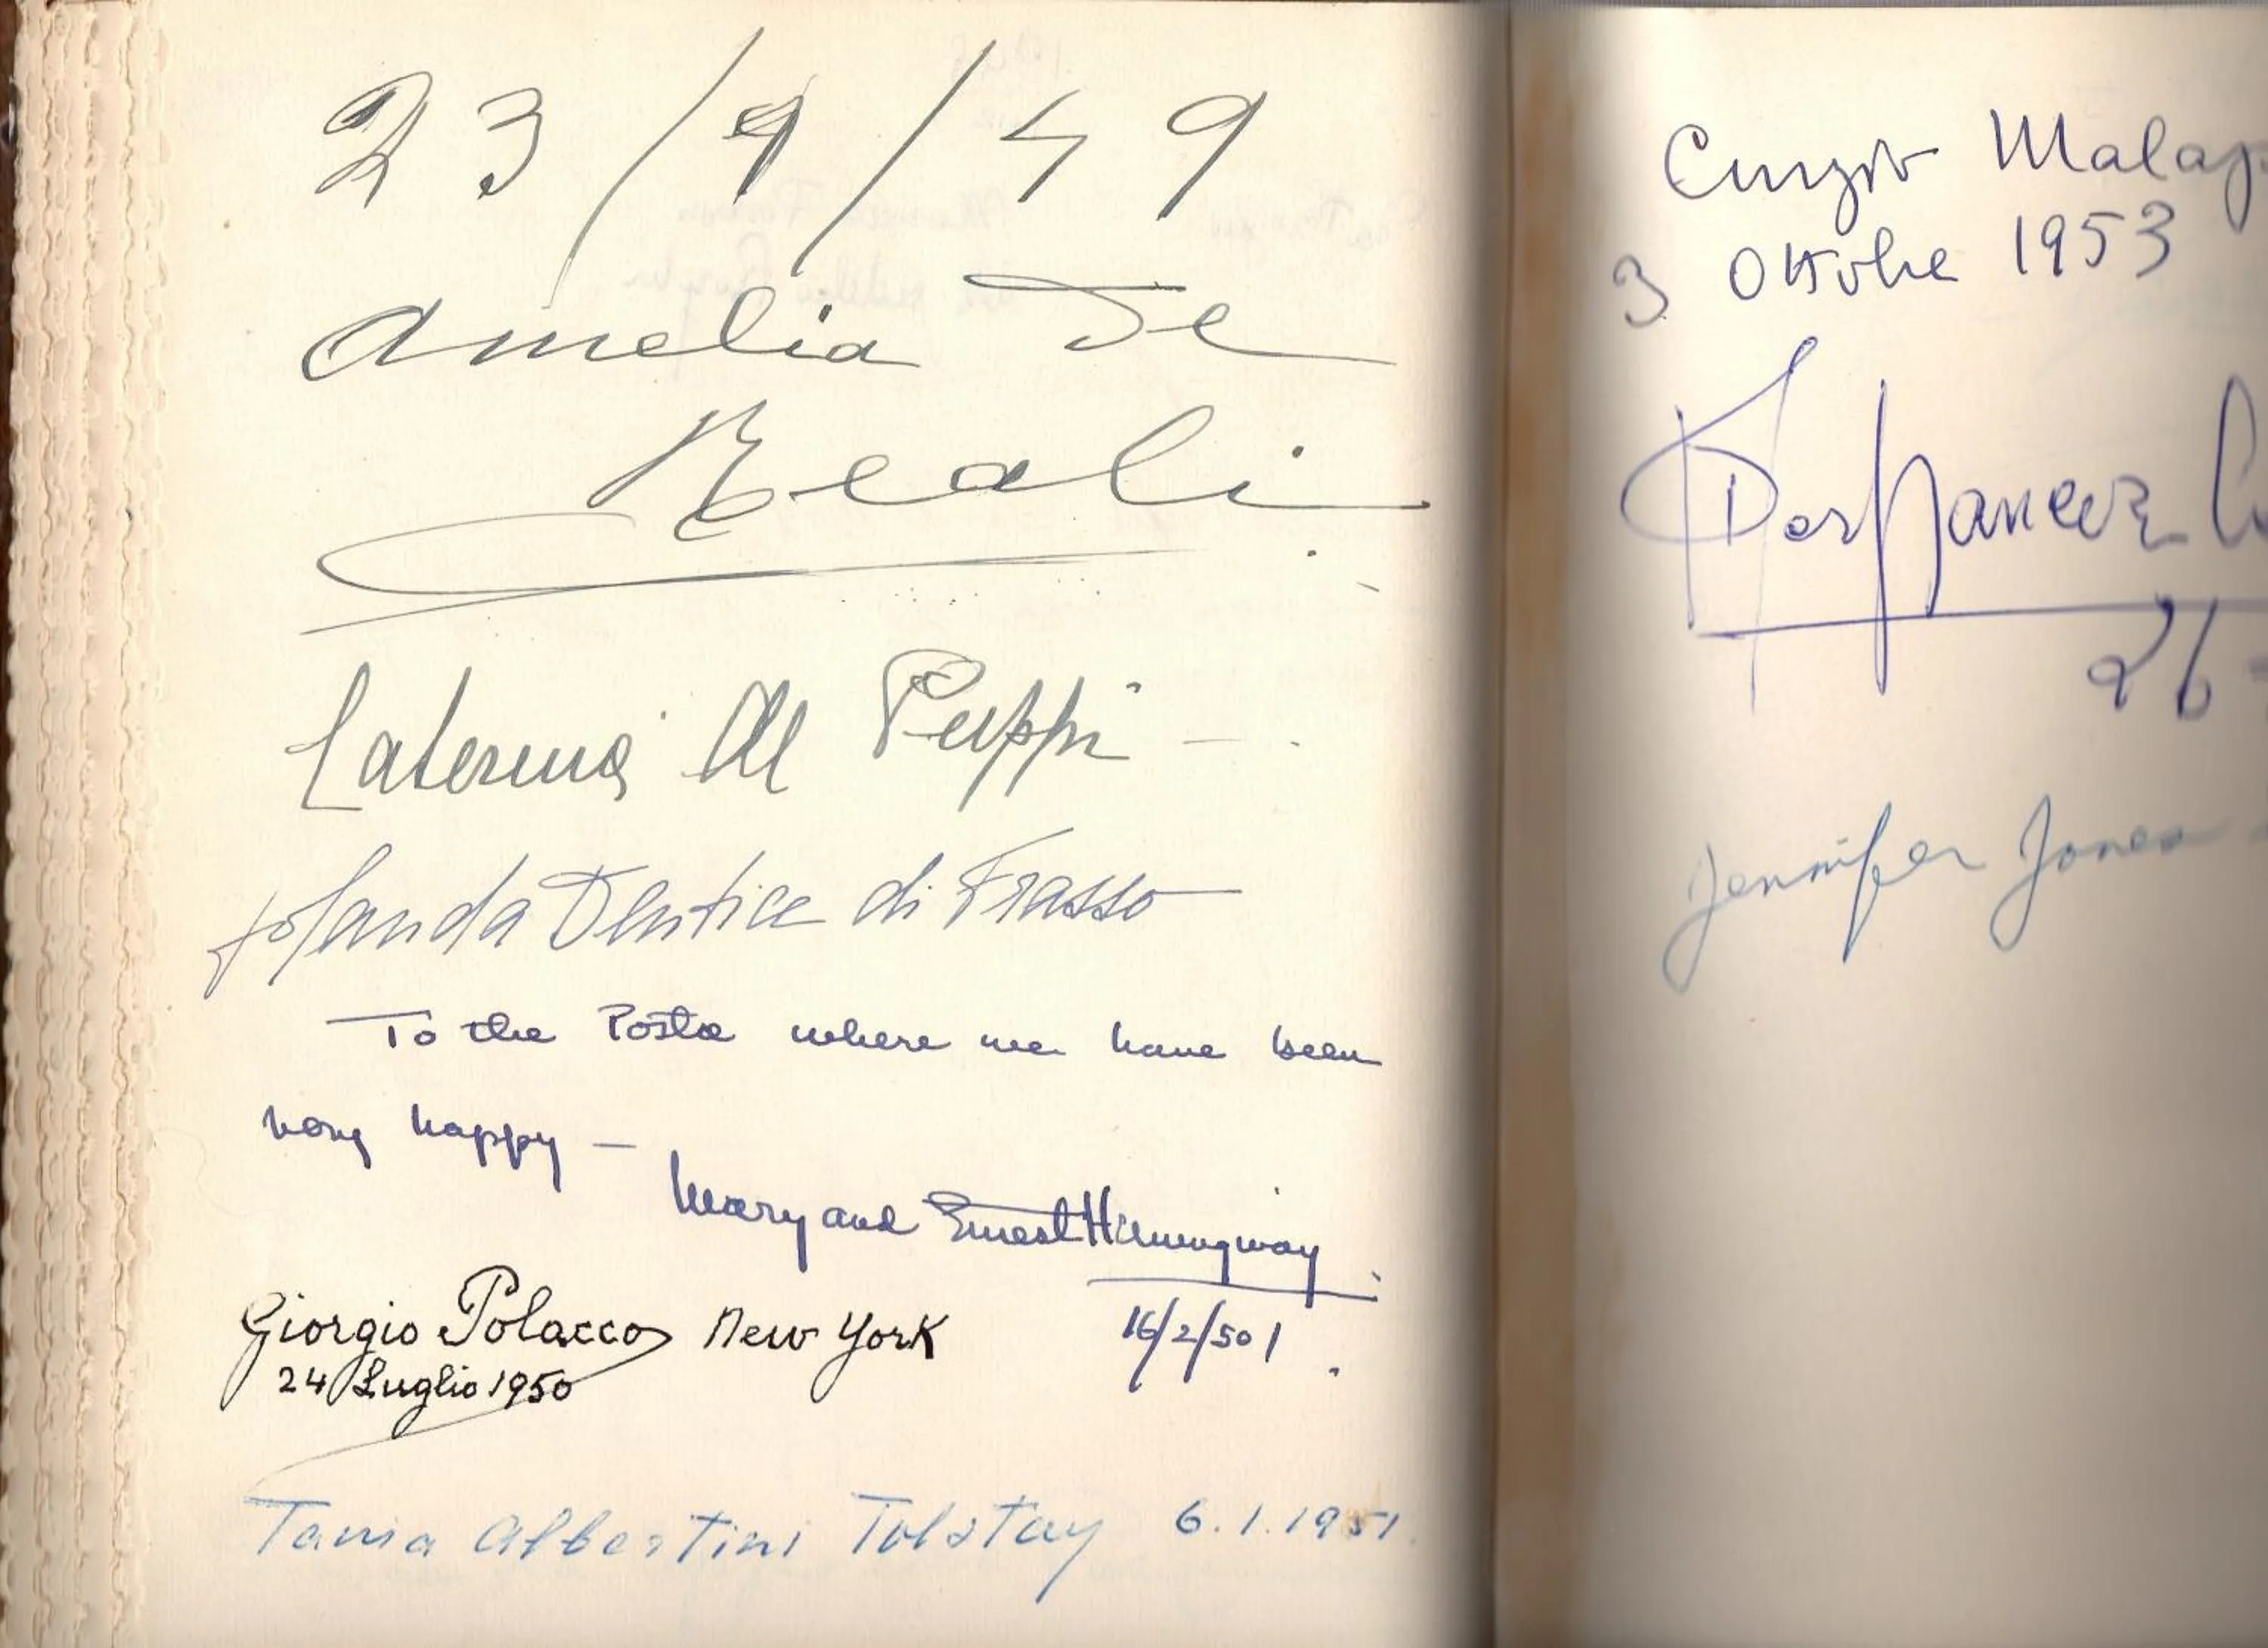 23/9/49
Amelia De
Reali
Caterina Al Puppi -
Jolanda Dentice di Frasso
To the Posta where we have been
very happy —
Mary and Ernest Hemingway
16/2/50
Giorgio Polacco New York
24 Luglio 1950
Tania Albertini Tolstay 6.1.1951
Curzio Malap
3 Ottobre 1953
26 -
Jennifer Jones -